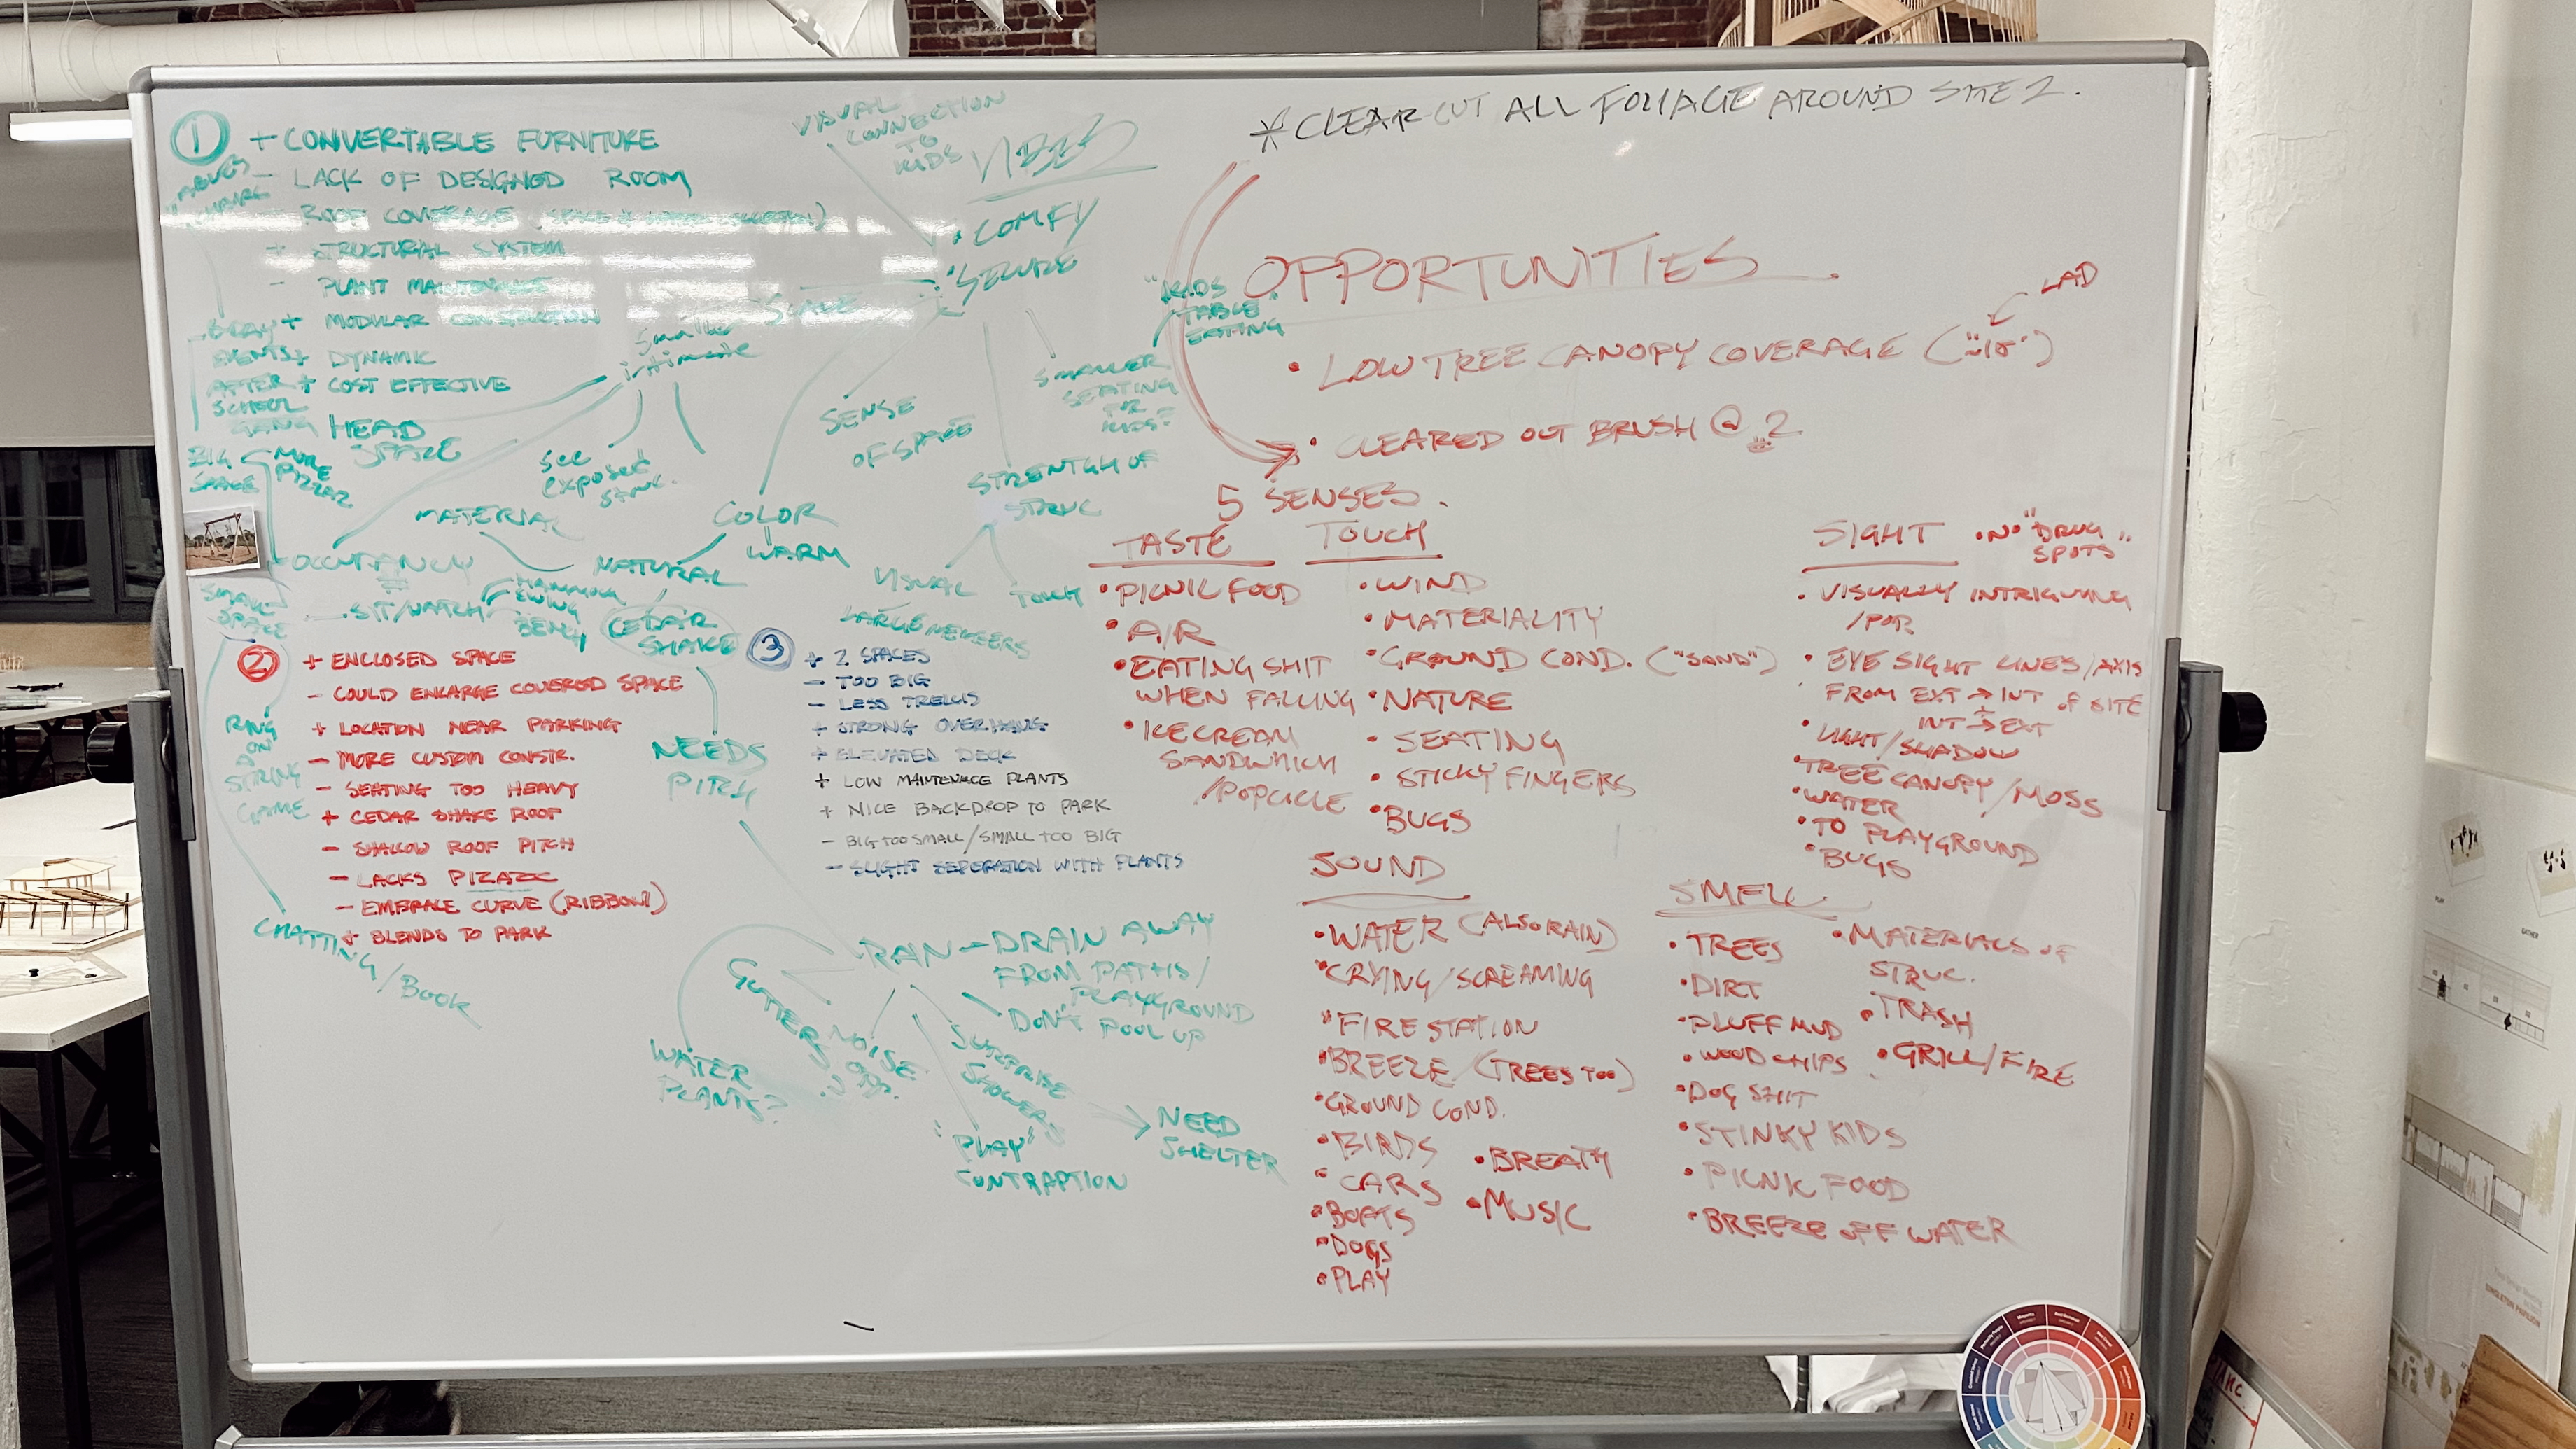 * CLEAR CUT ALL FOLIAGE AROUND SITE 2.
1
+ CONVERTABLE FURNITURE
- LACK OF DESIGNED ROOM
ROOF COVERAGE (SPACE
+ STRUCTURAL SYSTEM
- PLANT MAINTENANCE
+ MODULAR CONSTRUCTION
+ DYNAMIC
+ COST EFFECTIVE
B-DAY
EVENTS
AFTER
SCHOOL
GANG
BIG
SPACE
MORE
PIZZAZ
HEAD
SPACE
Smaller
intimate
SCALE
see
exposed
struc.
VISUAL
CONNECTION
TO
KIDS
VIBES
• COMFY
• SECURE
"KIDS
TABLE"
EATING
SMALLER
SEATING
FOR
KIDS
SENSE
OF SPACE
STRENTGH OF
STRUC
VISUAL
TOUCH
LARGE MEMBERS
MATERIAL
COLOR
WARM
NATURAL
CEDAR
SHAKE
NEEDS
PITCH
OCCUPANCY
SIT/WATCH
HAMMOCK
SWING
BENCH
SMALL
SPACE
RING
ON
A
STRING
GAME
CHATTING/Book
2
+ ENCLOSED SPACE
- COULD ENLARGE COVERED SPACE
+ LOCATION NEAR PARKING
- MORE CUSTOM CONSTR.
- SEATING TOO HEAVY
+ CEDAR SHAKE ROOF
- SHALLOW ROOF PITCH
- LACKS PIZAZZ
- EMBRACE CURVE (RIBBON?)
+ BLENDS TO PARK
3
+ 2 SPACES
- TOO BIG
- LESS TRELLIS
+ STRONG OVERHANG
+ ELEVATED DECK
+ LOW MAINTENACE PLANTS
+ NICE BACKDROP TO PARK
- BIG TOO SMALL/SMALL TOO BIG
- SLIGHT SEPERATION WITH PLANTS
RAIN - DRAIN AWAY
FROM PATHS/
PLAYGROUND
DON'T POOL UP
GUTTERS
NOISE
WATER
PLANTS?
SURPRISE
SHOWERS
NEED
SHELTER
"PLAY"
CONTRAPTION
OPPORTUNITIES
LAD
• LOW TREE CANOPY COVERAGE
• CLEARED OUT BRUSH @ 2
5 SENSES.
TASTE
• PICNIC FOOD
• AIR
• EATING SHIT
WHEN FALLING
• ICE CREAM
SANDWHICH
/POPCICLE
TOUCH
• WIND
• MATERIALITY
• GROUND COND. ("SAND")
• NATURE
• SEATING
• STICKY FINGERS
• BUGS
SIGHT
• NO "DRUG
SPOTS"
• VISUALLY INTRIGUING
/POP
• EYE SIGHT LINES/AXIS
FROM EXT → INT OF SITE
+
INT → EXT
• LIGHT/SHADOW
• TREE CANOPY/MOSS
• WATER
• TO PLAYGROUND
• BUGS
SOUND
• WATER (ALSO RAIN)
• CRYING/SCREAMING
• FIRE STATION
• BREEZE (TREES TOO)
• GROUND COND.
• BIRDS
• CARS
• BOATS
• DOGS
• PLAY
• BREATH
• MUSIC
SMELL
• TREES
• DIRT
• PLUFF MUD
• WOOD CHIPS
• DOG SHIT
• STINKY KIDS
• PICNIC FOOD
• BREEZE OFF WATER
• MATERIALS OF
STRUC.
• TRASH
• GRILL/FIRE
PLAY
GATHER